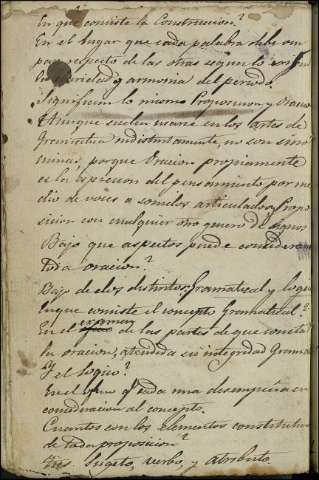 En què consiste la Construccion?
En el lugar que cada palabra debe ocu
par respecto de las otras segun lo
propiedad y armonia del periodo.
Significan lo mismo Proposicion y Oracion
Aunque suelen usarse en los Artes de
Gramatica indistintamente, no son sinó
nimas, porque Oracion propiamente
es la espresion del pensamiento por me
dio de voces o sonidos articulados, y Propo
sicion con cualquier otro genero de signos
Bajo que aspectos puede considerarse
toda oracion?
Bajo de dos distintos, Gramatical y Logico
En que consiste el concepto Gramatical?
En el examen de las partes de que consta
la oracion, atendida su integridad Gramal
Y el logico?
En el que cada una desempeña en
consideracion al concepto.
Cuantos son los elementos constitutivos
de toda proposicion?
Tres. Sugeto, verbo, y atributo.